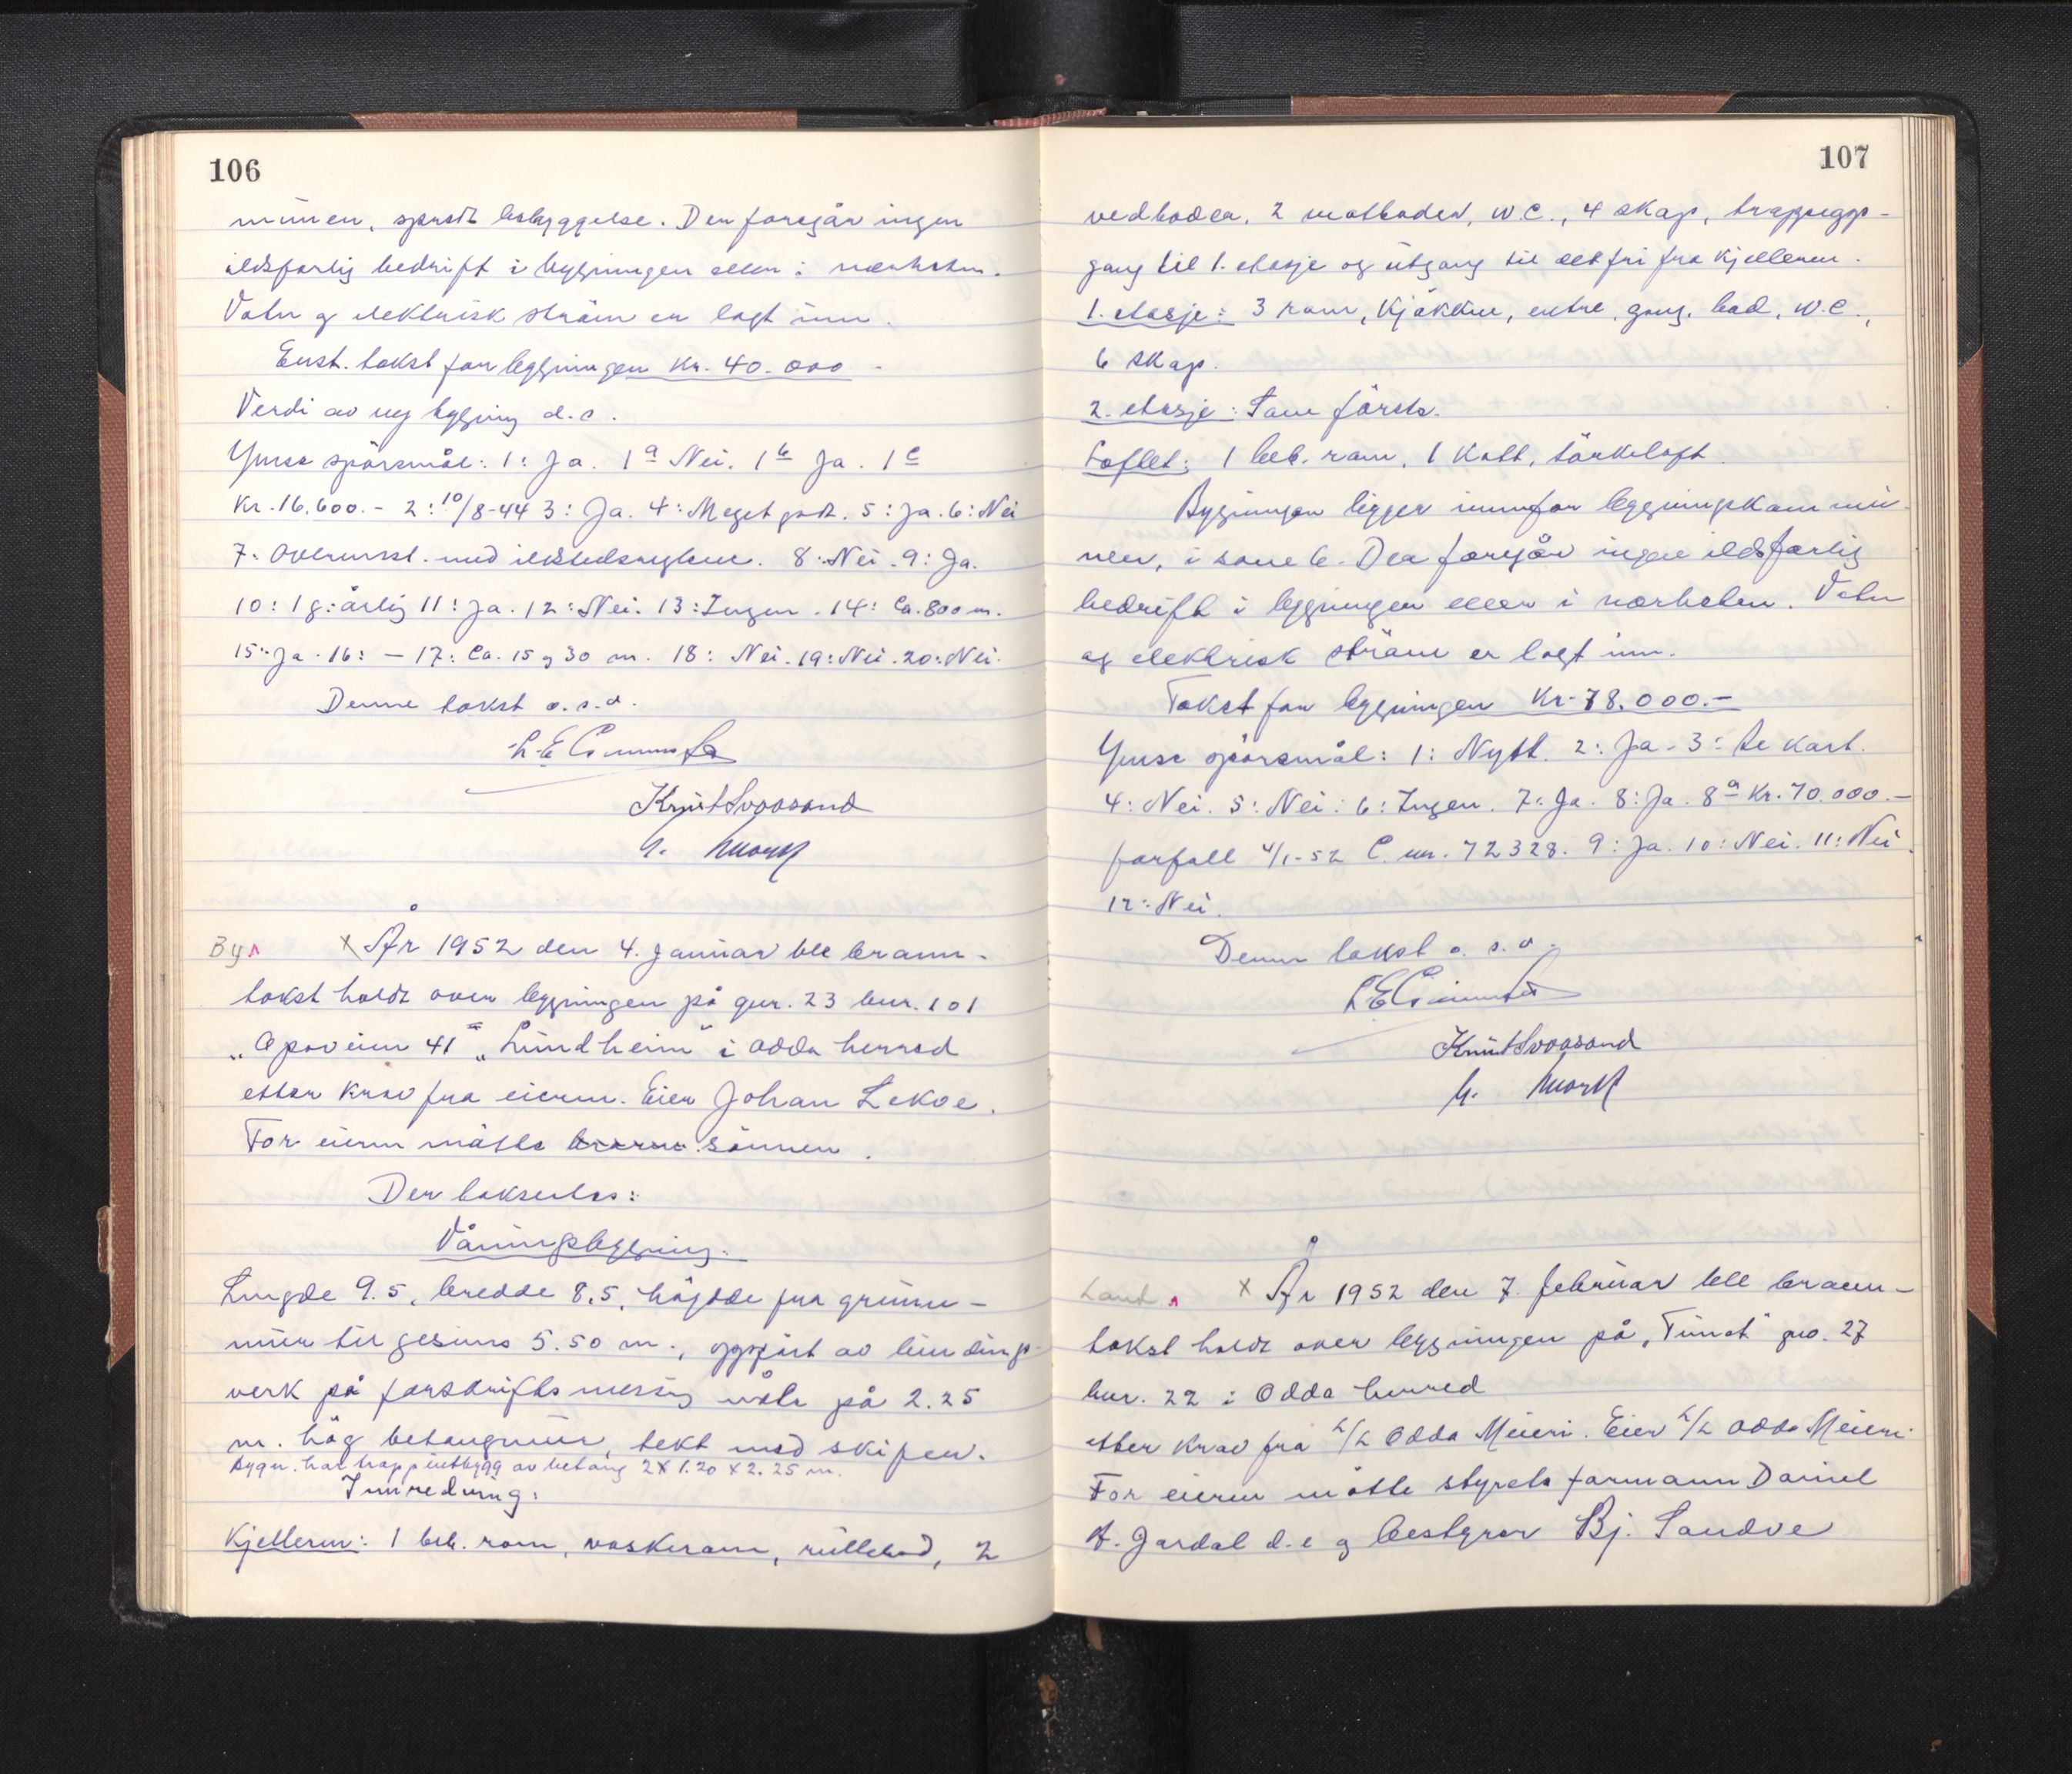 106
munen, spredt bebyggelse. Der foregår ingen
ildsfarlig bedrift i bygningen eller i nærheten.
Vatn og elektrisk strøm er lagt inn.
Enst. takst for bygningen Kr. 40.000 -
Verdi av ny bygning d.s.
Ymse spörsmål: 1: Ja. 1a Nei. 1b Ja. 1c
Kr. 16.600.- 2: 10/8-44 3: Ja. 4: Meget godt. 5: Ja. 6: Nei
7: Overensst. med ildstedsreglene. 8: Nei. 9: Ja.
10: 1 g: årlig 11: Ja. 12: Nei. 13: Ingen. 14: Ca. 800 m.
15: Ja. 16: — 17: Ca. 15 og 30 m. 18: Nei. 19: Nei. 20: Nei.
Denne takst o.s.v.
Knut Svoosand
By
x År 1952 den 4. Januar ble brann-
takst holdt over bygningen på gnr. 23 bnr. 101
"Apoveien 41" "Lundheim" i Odda herred
etter krav fra eieren. Eier Johan Lekve.
For eieren møtte sönnen.
Der takseres:
Våningsbygning.
Lengde 9.5, bredde 8.5, höyde fra grunn-
mur til gesims 5.50 m., oppfört av bindings-
verk på forskriftsmessig måte på 2.25
m. høg betongmur, tekt med skifer.
Bygn. har trappeutbygg av betong 2 x 1.20 x 2.25 m.
Innredning:
Kjelleren: 1 beb. rom, vaskerom, rullebod, 2
107
vedboder, 2 matboder, W.C., 4 skap, trappeopp-
gang til 1. etasje og utgang til det fri fra Kjelleren.
1. etasje: 3 rom, Kjökken, entre, gang, bad, W.C.,
6 skap.
2. etasje: Som förste.
Loftet: 1 beb. rom, 1 Kott, törkeloft.
Bygningen ligger innenfor bygningskommu-
nen, i sone b. Der foregår ingen ildsfarlig
bedrift i bygningen eller i nærheten. Vatn
og elektrisk ström er lagt inn.
Takst for bygningen Kr. 78.000.-
Ymse spörsmål: 1: Nytt. 2: Ja. 3: Se kart.
4: Nei. 5: Nei. 6: Ingen. 7: Ja. 8: Ja. 8a Kr. 70.000.-
forfall 4/1-52 C. nr. 72328. 9: Ja. 10: Nei. 11: Nei.
12: Nei.
Denne takst o.s.v.
Knut Svoosand
Land
x År 1952 den 7. februar ble brann-
takst holdt over bygningen på "Tunet" gno. 27
bnr. 22 i Odda herred
etter krav fra L/L Odda Meieri. Eier L/L Odda Meieri.
For eieren møtte styrets formann Daniel
A. Jordal d.e. og bestyrer Bj. Sandve